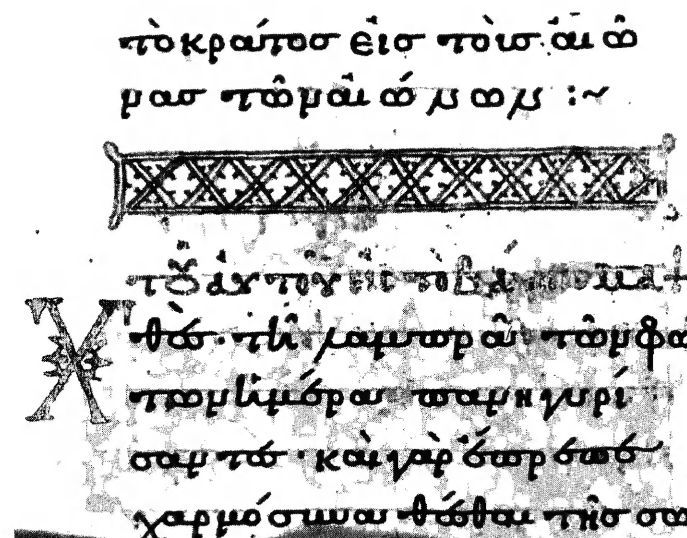 τὸ κράτος εἰς τοὺς αἰῶ
νας τῶν αἰώνων :~
τοῦ αὐτοῦ εἰς τὸ βάπτισμα +
Χθὲς τῆι λαμπρᾶι τῶν φώ
των ἡμέραι πανηγυρί
σαντες · καὶ γὰρ ἔπρεπε
χαρμόσυνα θέσθαι τῆς σω